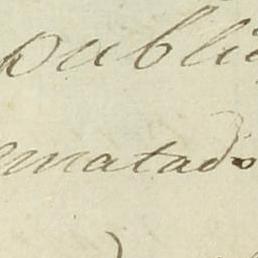 publi
ematado